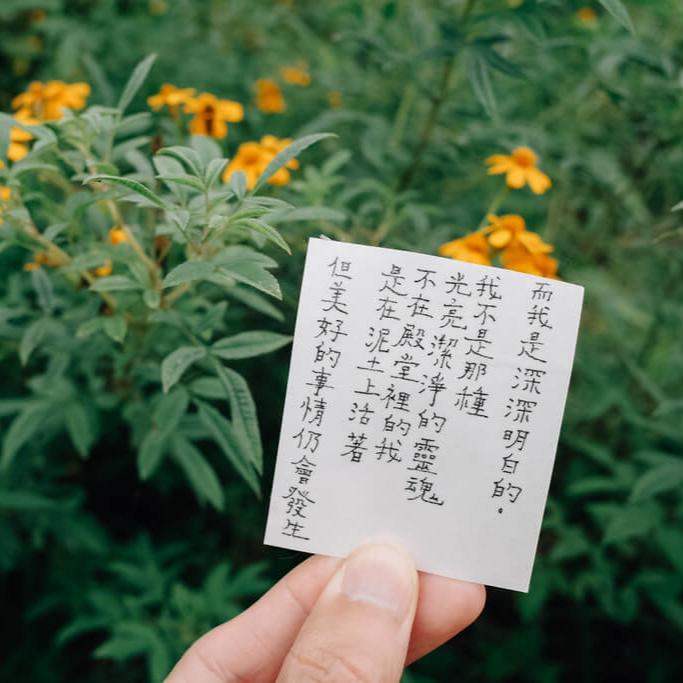 而我是深深明白的。
我不是那種
光亮潔淨的靈魂
不在殿堂裡的我
是在泥土上活著
但美好的事情仍會發生